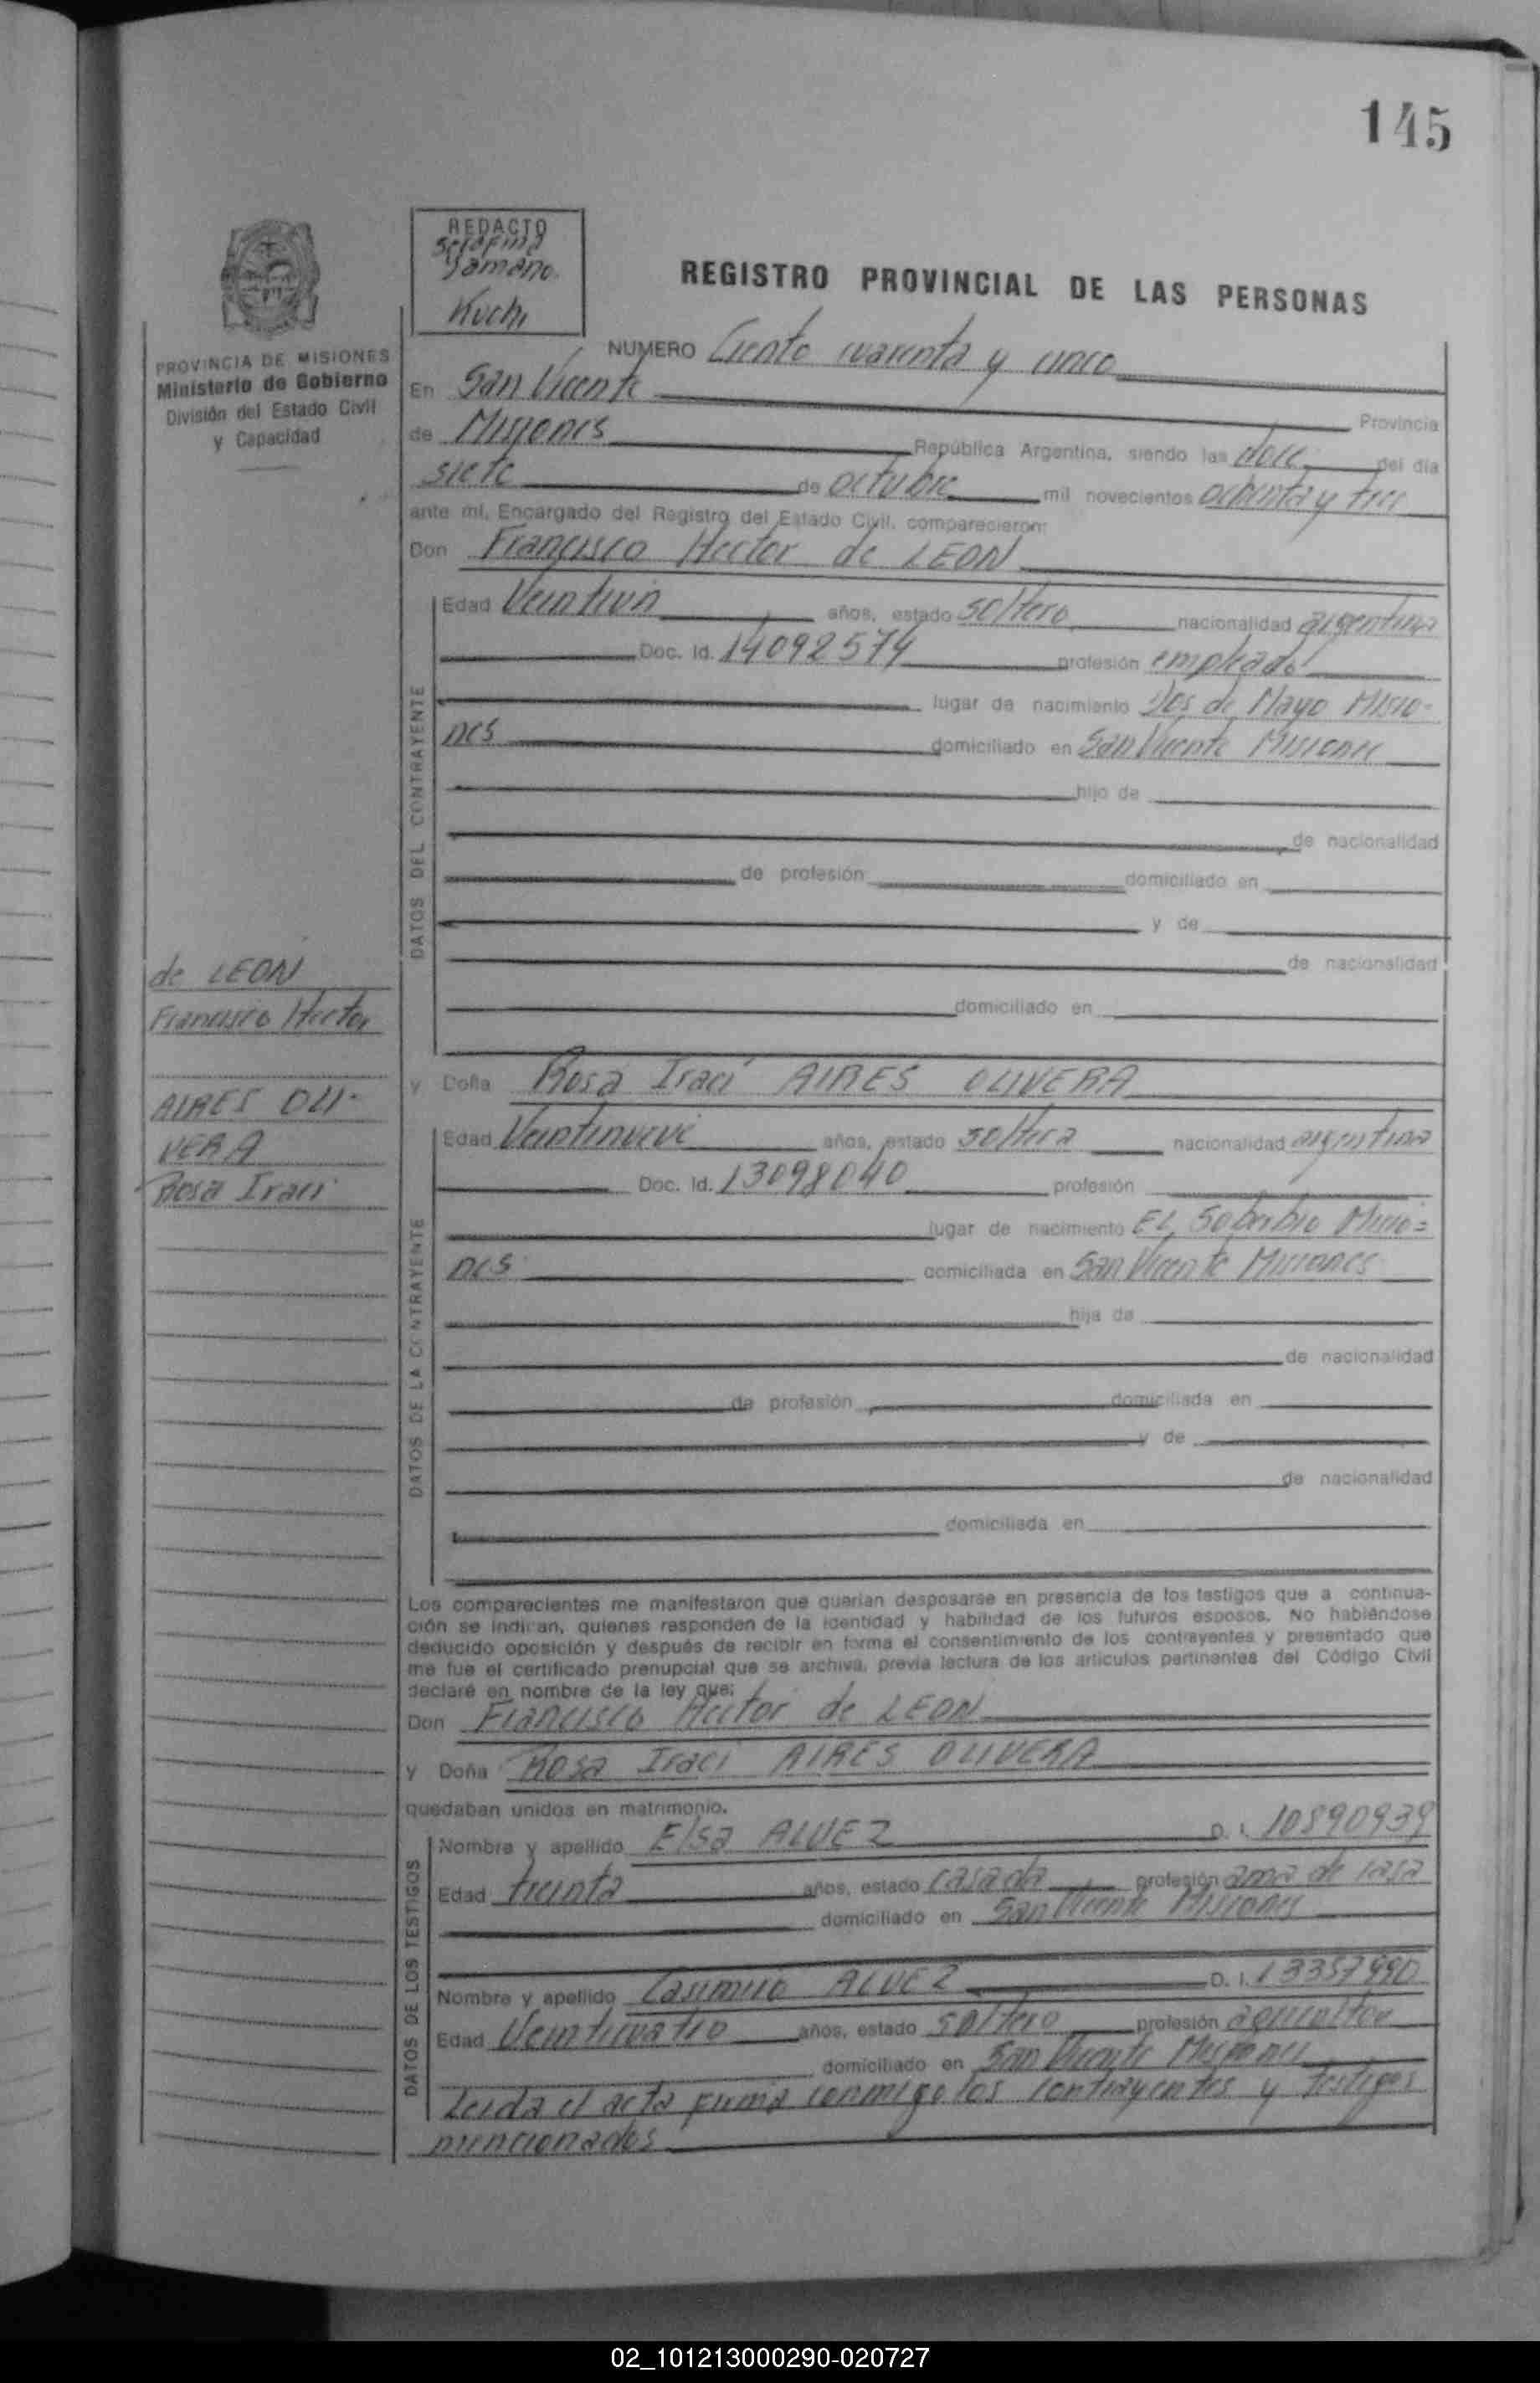 145
REDACTO
Serafina
Yamano
Kuchi
REGISTRO PROVINCIAL DE LAS PERSONAS
PROVINCIA DE MISIONES
Ministerio de Gobierno
División del Estado Civil
y Capacidad
NUMERO Ciento cuarenta y cinco
En San Vicente Provincia
de Misiones República Argentina, siendo las doce del día
siete de octubre mil novecientos ochenta y tres
ante mí, Encargado del Registro del Estado Civil, comparecieron:
Don Francisco Hector de LEON
DATOS DEL CONTRAYENTE
Edad Veintiun años, estado soltero nacionalidad argentina
Doc. Id. 14092574 profesión empleado
lugar de nacimiento Dos de Mayo Misio-
nes domiciliado en San Vicente Misiones
hijo de
de nacionalidad
de profesión domiciliado en
y de
de nacionalidad
domiciliado en
de LEON
Francisco Hector
AIRES OLI-
VERA
Rosa Iraci
y Doña Rosa Iraci AIRES OLIVERA
DATOS DE LA CONTRAYENTE
Edad Veintinueve años, estado soltera nacionalidad argentina
Doc. Id. 13098040 profesión
lugar de nacimiento EL Soberbio Misio=
nes domiciliada en San Vicente Misiones
hija de
de nacionalidad
de profesión domiciliada en
y de
de nacionalidad
domiciliada en
Los comparecientes me manifestaron que querían desposarse en presencia de los testigos que a continua-
ción se indican, quienes responden de la identidad y habilidad de los futuros esposos. No habiéndose
deducido oposición y después de recibir en forma el consentimiento de los contrayentes y presentado que
me fue el certificado prenupcial que se archiva, previa lectura de los artículos pertinentes del Código Civil
declaré en nombre de la ley que:
Don Francisco Hector de LEON
y Doña Rosa Iraci AIRES OLIVERA
quedaban unidos en matrimonio.
DATOS DE LOS TESTIGOS
Nombre y apellido Elsa ALVEZ D. I. 10890939
Edad treinta años, estado casada profesión ama de casa
domiciliado en San Vicente Misiones
Nombre y apellido Casimiro ALVEZ D. I. 13357990
Edad Veinticuatro años, estado soltero profesión agricultor
domiciliado en San Vicente Misiones
Leida el acta firma conmigo los contrayentes y testigos
mencionados
02_101213000290-020727